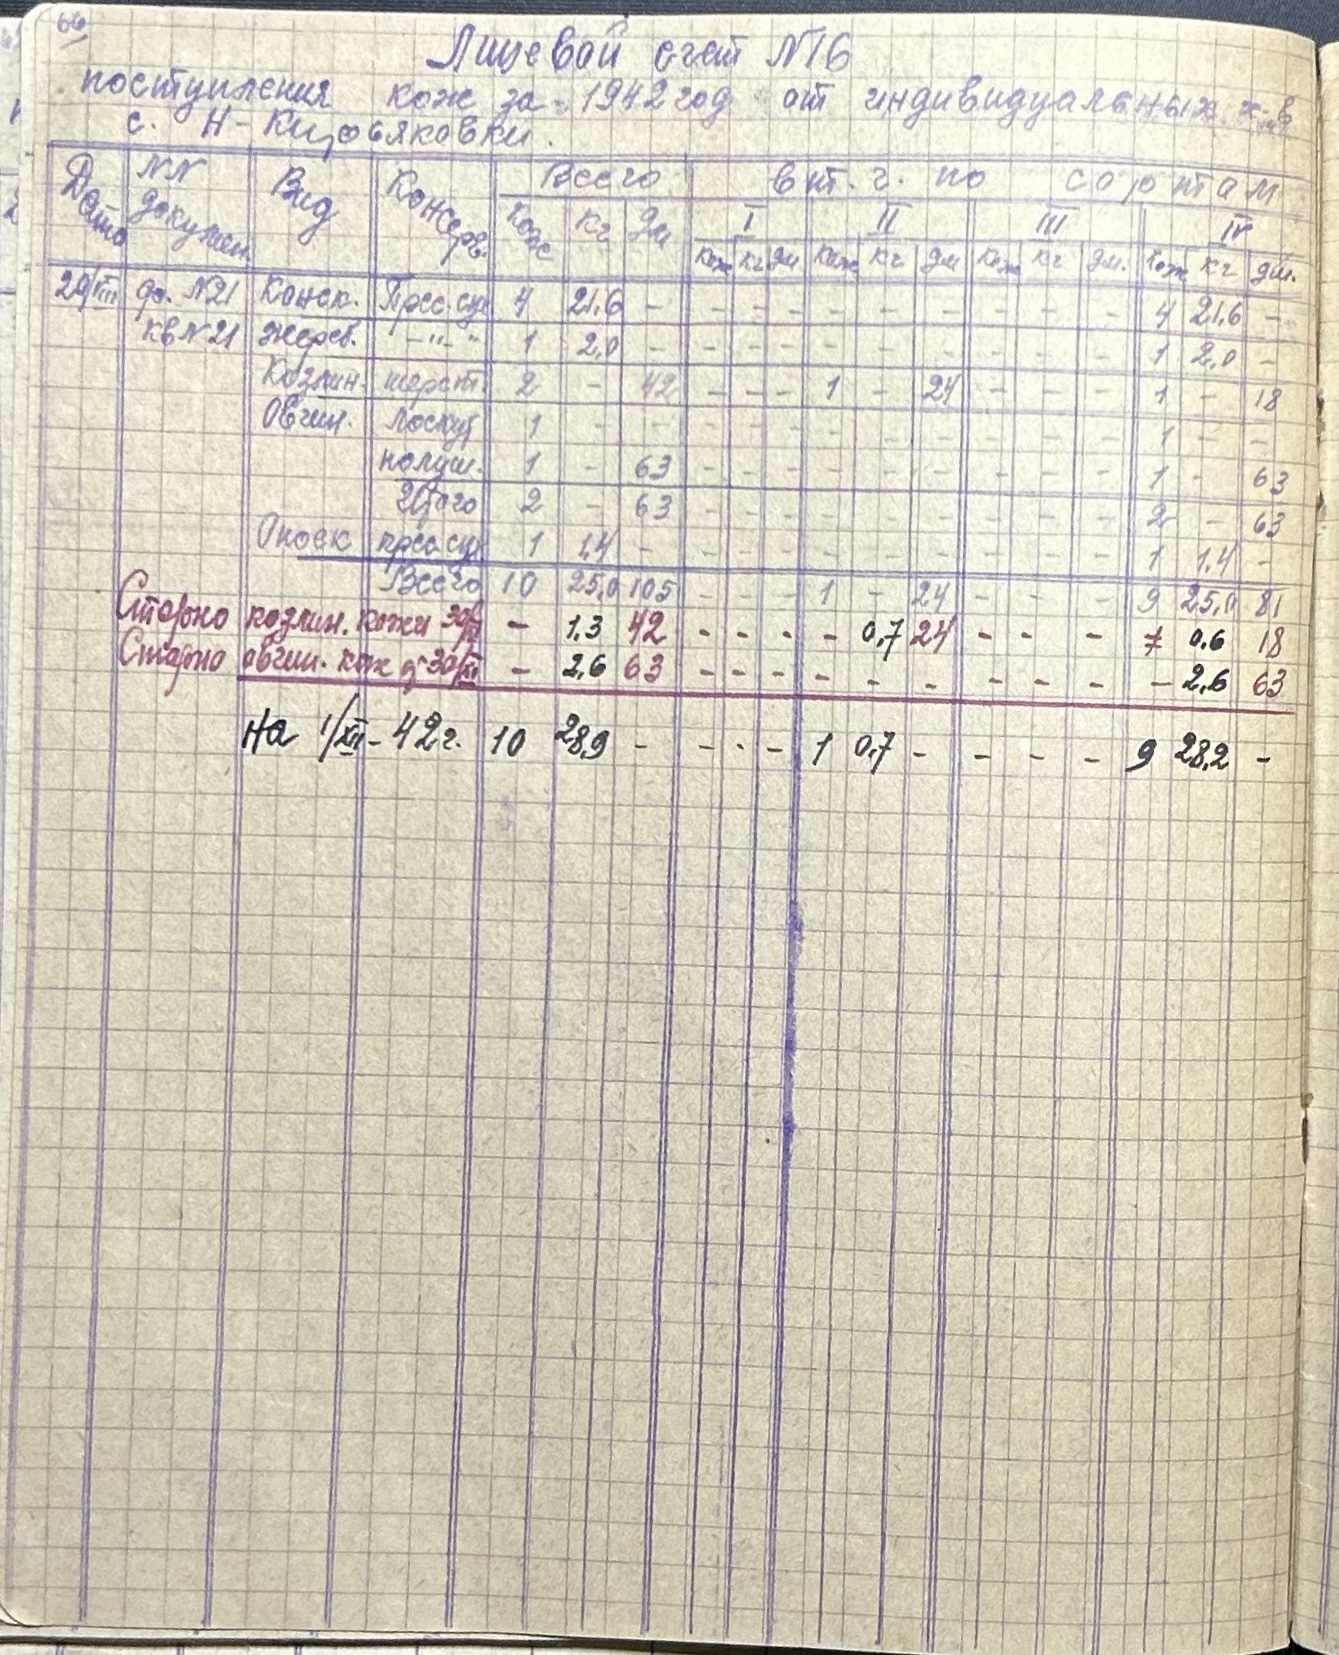 66
Лицевой счет №16
поступления кож за 1942 год от индивидуальных х-в
с. Н-
Дата №№ докумен. Вид Консерв. Всего в т.ч. по сортам
I II III IV
Кож кг дм Кож кг дм Кож кг дм Кож кг дм. Кож кг дм.
29/III №21 Конск. Прес.сух 4 21,6 - - - - - - - - - - 4 21,6 -
кв№21 жереб. -"- 1 2,0 - - - - - - - - - - 1 2,0 -
Козлин. шерст. 2 - 42 - - - 1 - 24 - - - 1 - 18
Овчин. Лоскут 1 - - - - - - - - - - - 1 - -
полуш. 1 - 63 - - - - - - - - - 1 - 63
Итого 2 - 63 - - - - - - - - - 2 - 63
Опоек прес.сух 1 1,4 - - - - - - - - - - 1 1,4 -
Всего 10 25,0 105 - - - 1 - 24 - - - 9 25,0 81
Сторно козлин. кожи 30/XI - 1,3 42 - - - - 0,7 24 - - - 0,6 18
Сторно овчин. кож 30/XI - 2,6 63 - - - - - - - - - - 2,6 63
На 1/XII - 42 г. 10 28,9 - - - - 1 0,7 - - - - 9 28,2 -